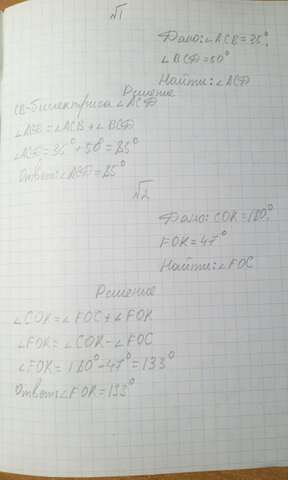 √1
Дано: ∠ACB=35°,
∠BCD=50°
Найти: ∠ACD
Решение
CB-биссектриса ∠ACD
∠ACD=∠ACB+∠BCD
∠ACD=35°+50°=85°
Ответ: ∠ACD=85°
√2
Дано: COK=180°,
FOK=47°
Найти: ∠FOC
Решение
∠COK=∠FOC+∠FOK
∠FOK=∠COK-∠FOC
∠FOK=180°-47°=133°
Ответ: ∠FOK=133°